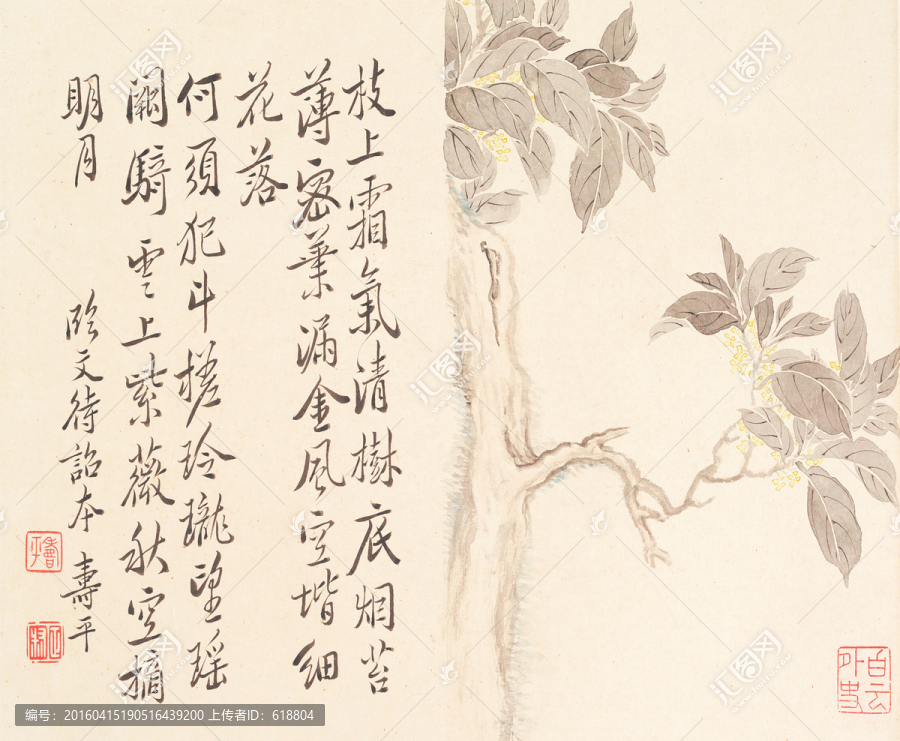 枝上霜氣清樹底烟苔
薄密葉漏金風空堦細
花落
何須犯斗槎玲瓏望瑤
闕騎雲上紫薇秋空摘
明月
臨文待詔本 壽平
壽平
白云外史
汇图网
编号：20160415190516439200 上传用户ID：618804